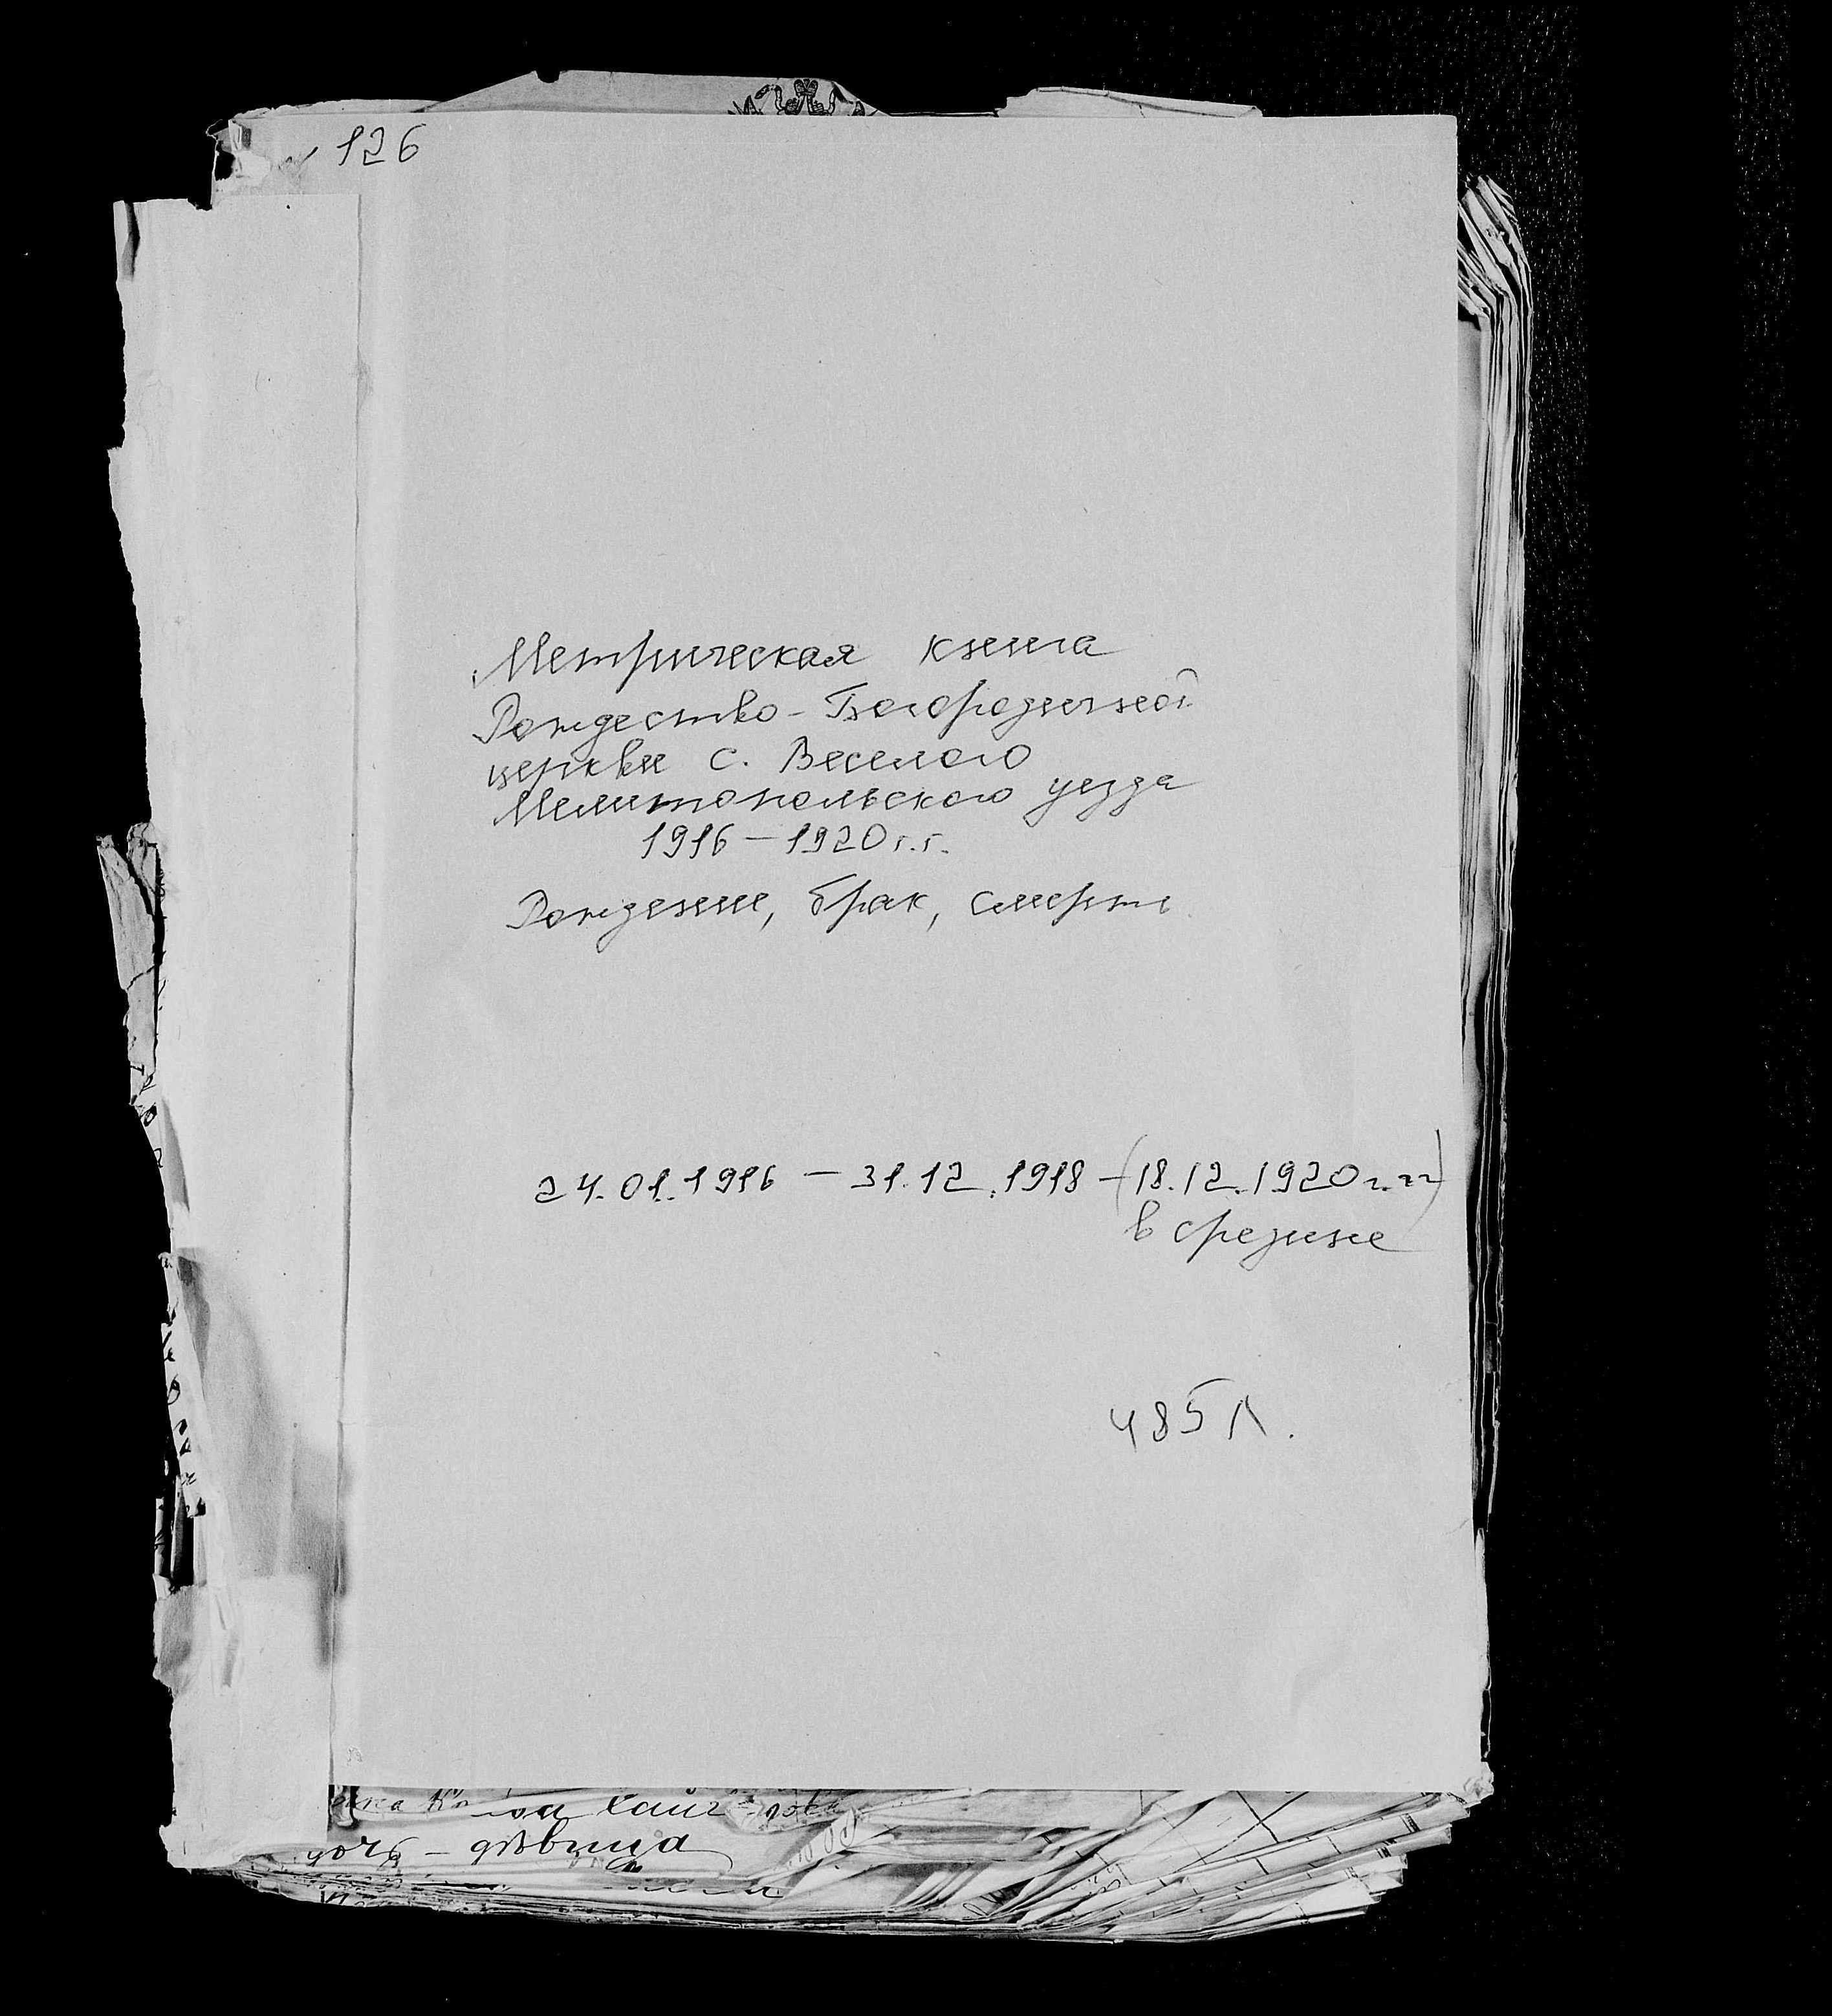 126
Метрическая книга
Рождество-Богородичной
церкви с. Веселого
Мелитопольского уезда
1916 – 1920 г.г.
Рождение, брак, смерть
24.01.1916 – 31.12.1918 – (18.12.1920 г.г)
в средине
485 л.
дочь – дѣвица